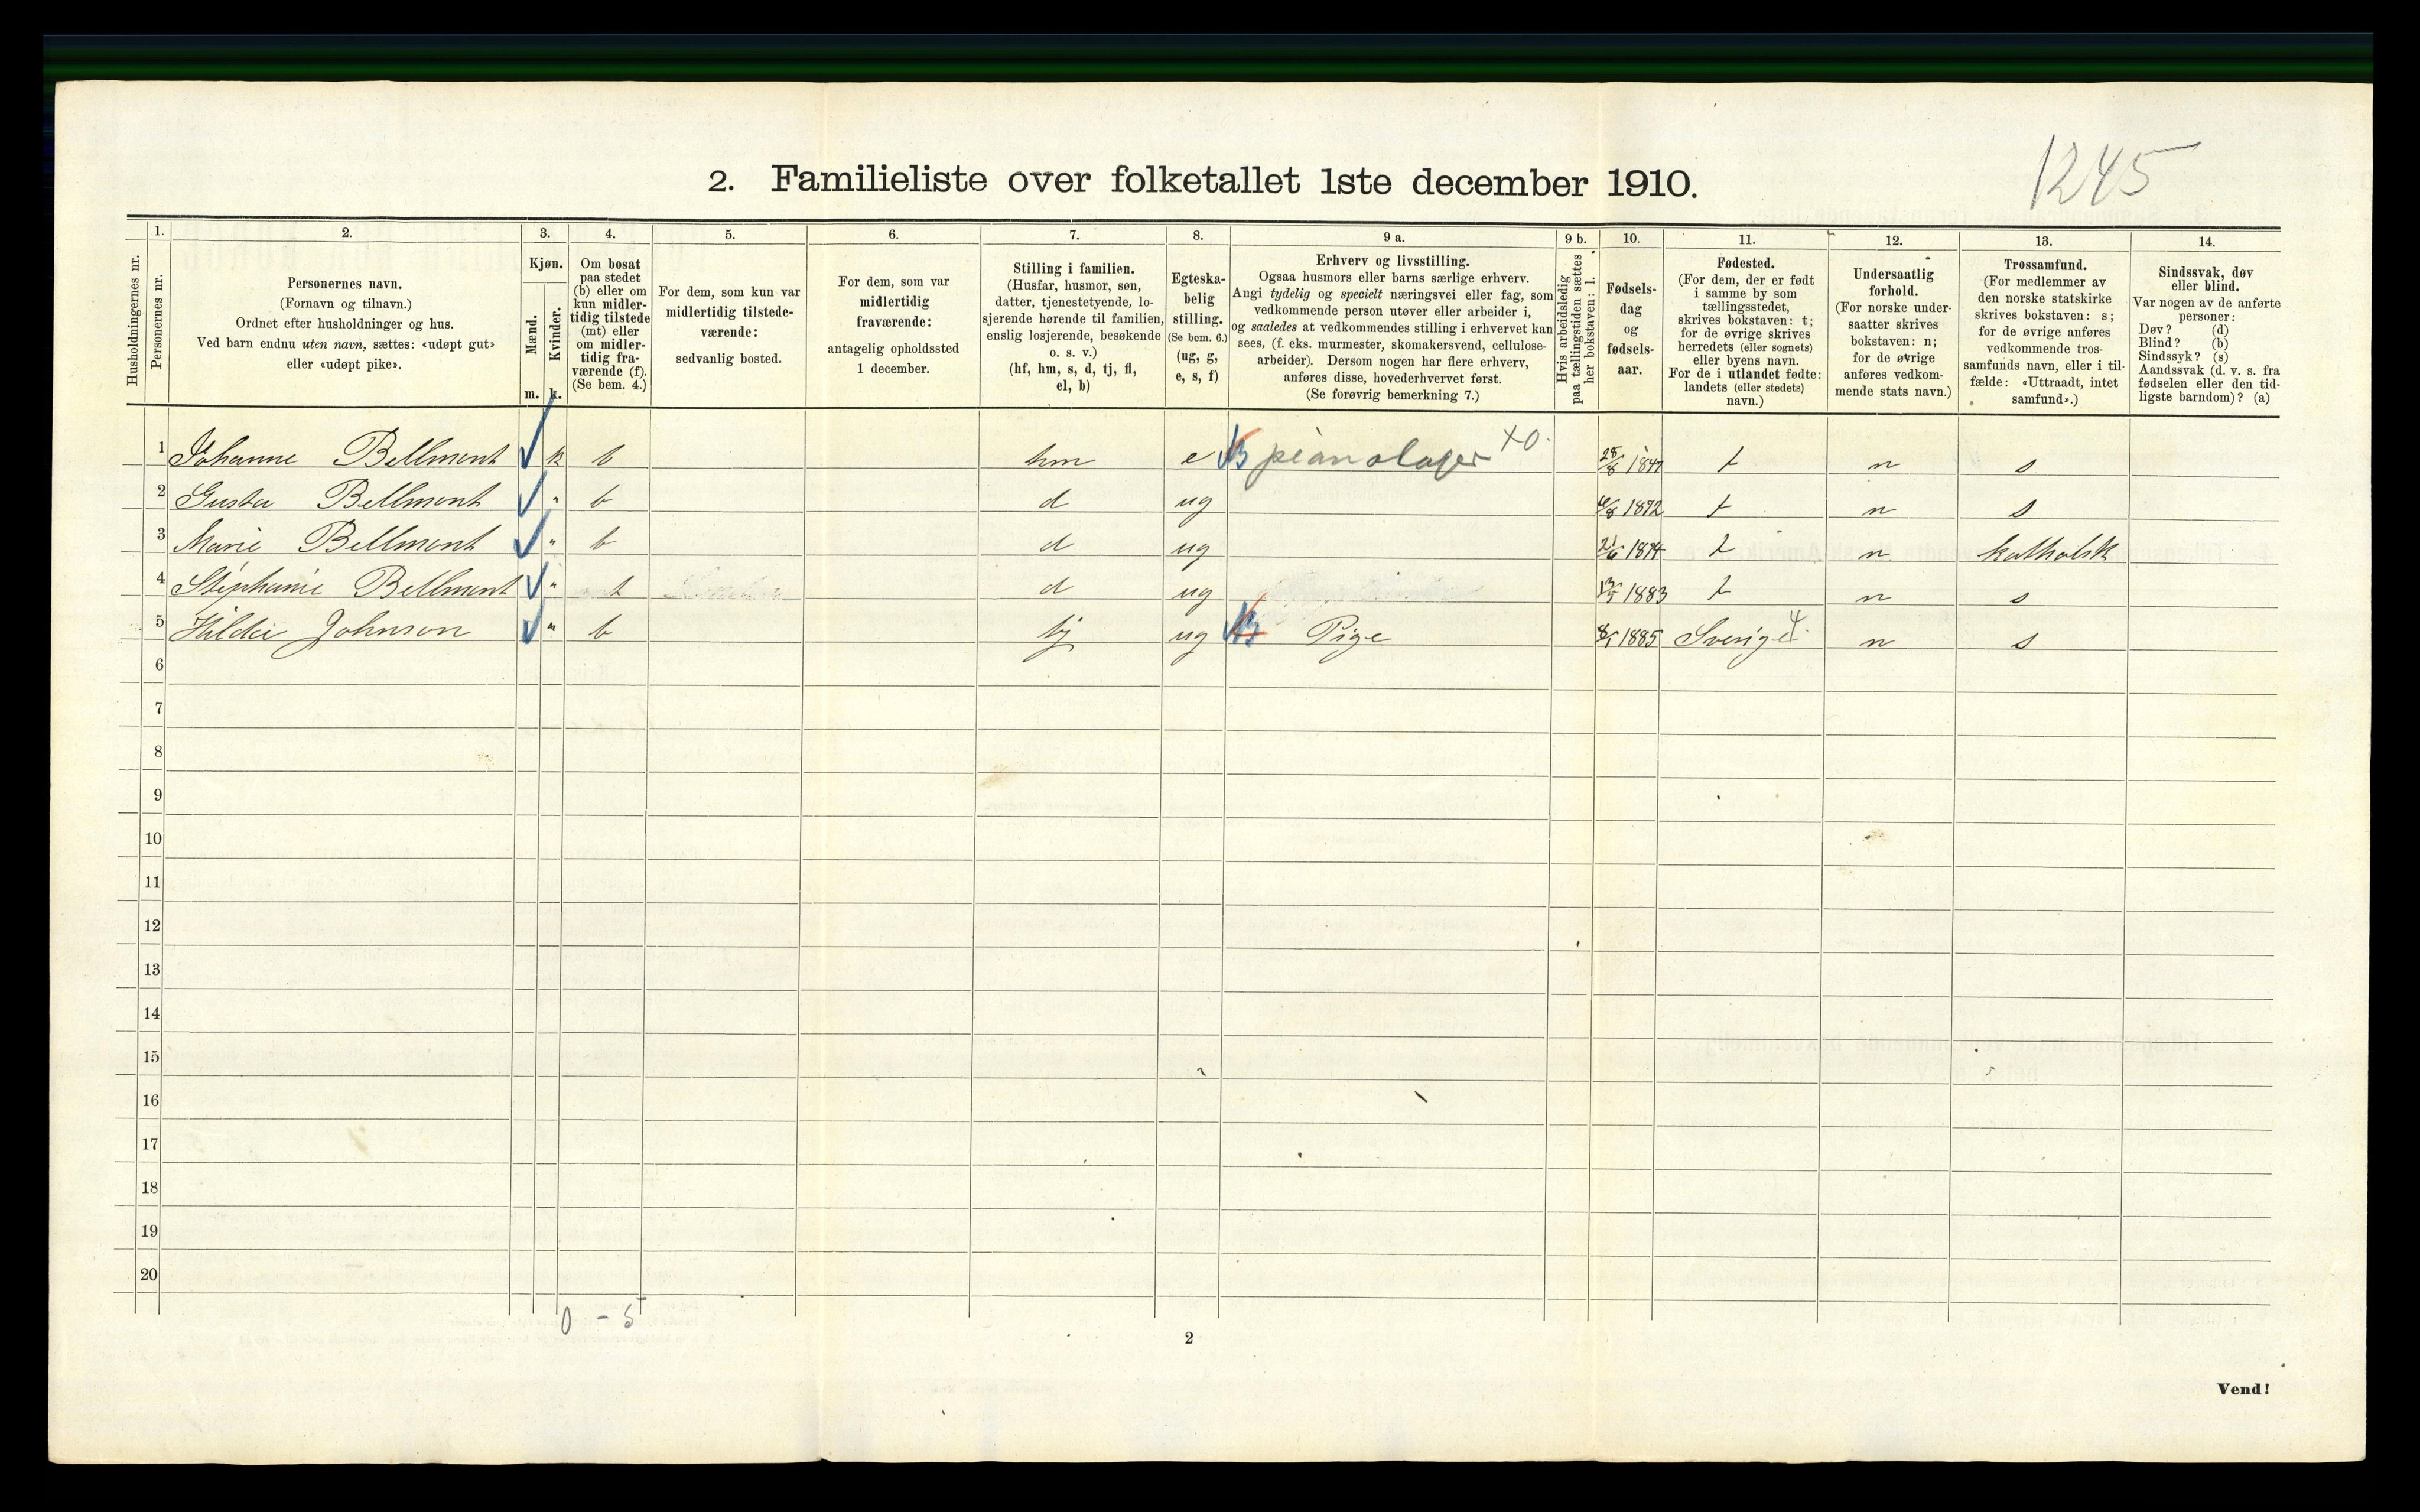 1245
2. Familieliste over folketallet 1ste december 1910.
Husholdningernes nr.
1.
Personernes nr.
2.
Personernes navn.
(Fornavn og tilnavn.)
Ordnet efter husholdninger og hus.
Ved barn endnu uten navn, sættes: «udøpt gut»
eller «udøpt pike».
3.
Kjøn.
Mænd.
Kvinder.
m. k.
4.
Om bosat
paa stedet
(b) eller om
kun midler-
tidig tilstede
(mt) eller
om midler-
tidig fra-
værende (f).
(Se bem. 4.)
5.
For dem, som kun var
midlertidig tilstede-
værende:
sedvanlig bosted.
6.
For dem, som var
midlertidig
fraværende:
antagelig opholdssted
1 december.
7.
Stilling i familien.
(Husfar, husmor, søn,
datter, tjenestetyende, lo-
sjerende hørende til familien,
enslig losjerende, besøkende
o. s. v.)
(hf, hm, s, d, tj, fl,
el, b)
8.
Egteska-
belig
stilling.
(Se bem. 6.)
(ug, g,
e, s, f)
9 a.
Erhverv og livsstilling.
Ogsaa husmors eller barns særlige erhverv.
Angi tydelig og specielt næringsvei eller fag, som
vedkommende person utøver eller arbeider i,
og saaledes at vedkommendes stilling i erhvervet kan
sees, (f. eks. murmester, skomakersvend, cellulose-
arbeider). Dersom nogen har flere erhverv,
anføres disse, hovederhvervet først.
(Se forøvrig bemerkning 7.)
9 b.
Hvis arbeidsledig
paa tællingstiden sættes
her bokstaven: l.
10.
Fødsels-
dag
og
fødsels-
aar.
11.
Fødested.
(For dem, der er født
i samme by som
tællingsstedet,
skrives bokstaven: t;
for de øvrige skrives
herredets (eller sognets)
eller byens navn.
For de i utlandet fødte:
landets (eller stedets)
navn.)
12.
Undersaatlig
forhold.
(For norske under-
saatter skrives
bokstaven: n;
for de øvrige
anføres vedkom-
mende stats navn.)
13.
Trossamfund.
(For medlemmer av
den norske statskirke
skrives bokstaven: s;
for de øvrige anføres
vedkommende tros-
samfunds navn, eller i til-
fælde: «Uttraadt, intet
samfund».)
14.
Sindssvak, døv
eller blind.
Var nogen av de anførte
personer:
Døv? (d)
Blind? (b)
Sindssyk? (s)
Aandssvak (d. v. s. fra
fødselen eller den tid-
ligste barndom)? (a)
1 Johanne Bellmont k b hm e pianolager x0. t n s
2 Gusta Bellmont " b d ug 1872 t n s
3 Marie Bellmont " b d ug 1874 t n katholsk
4 Stephanie Bellmont " t d ug 1883 t n s
5 Hilda Johnson " b tj ug Pige 1885 Sverige n s
6
7
8
9
10
11
12
13
14
15
16
17
18
19
20
0 - 5
2
Vend!